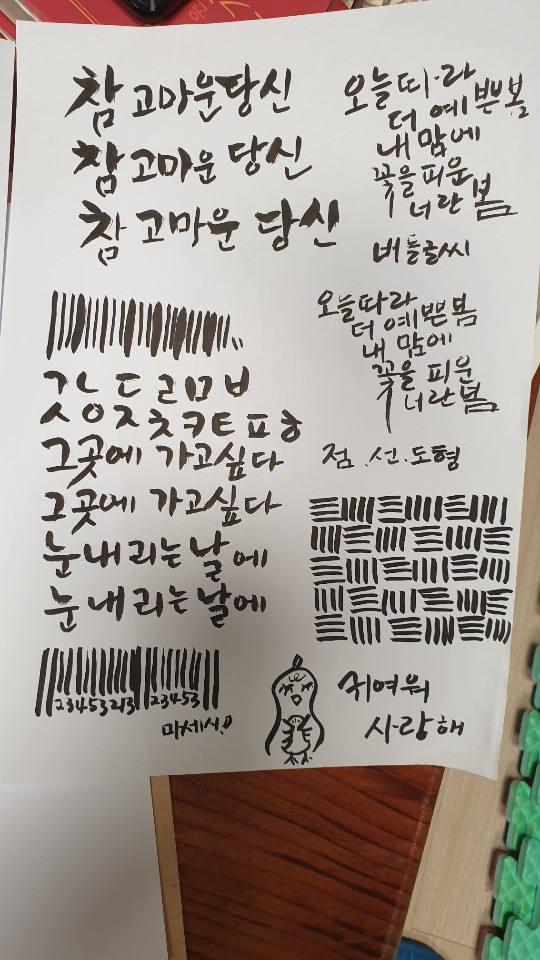 참 고마운당신
참 고마운 당신
참 고마운 당신
오늘따라
더 예쁜봄
내 맘에
꽃을 피운
너란 봄
버들글씨
오늘따라
더 예쁜봄
내 맘에
꽃을 피운
너란봄
ㄷㄹㅁㅂ
ㅈㅊㅋㅌㅍㅎ
그곳에 가고싶다
그곳에 가고싶다
눈내리는 날에
눈내리는날에
점.선.도형
23453213 23453
귀여워
사랑해